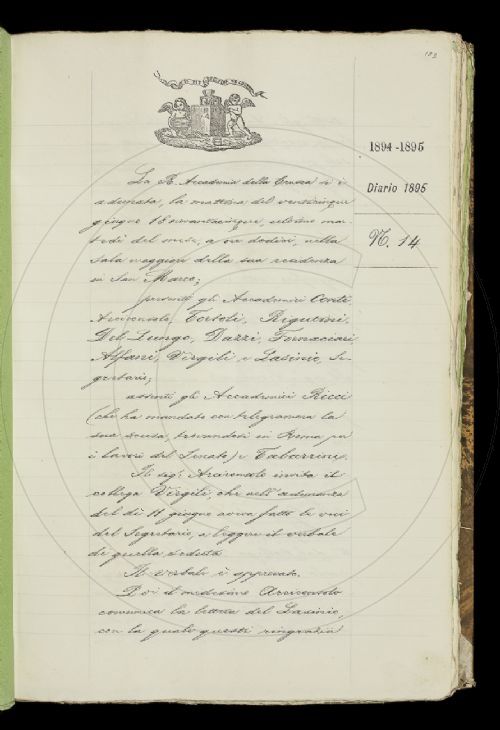 183
1894-1895
Diario 1895
N. 14
La R. Accademia della Crusca si è
adunata, la mattina del venticinque
giugno 18novantacinque, ultimo mar-
tedì del mese, a ore dodici, nella
sala maggiore della sua residenza
in San Marco;
presenti gli Accademici Conti
Arciconsolo, Tortoli, Rigutini,
Del Lungo, Dazzi, Fornaciari
Alfani, Virgili e Lasinio, Se-
gretario;
assenti gli Accademici Ricci
(che ha mandato con telegramma la
sua scusa, trovandosi in Roma per
i lavori del Senato) e Tabarrini.
Il sig. Arciconsolo invita il
collega Virgili, che nell'adunanza
del dì 11 giugno aveva fatto le veci
del Segretario, a leggere il verbale
di quella seduta.
Il verbale è approvato.
Poi il medesimo Arciconsolo
comunica la lettera del Lasinio,
con la quale questi ringrazia